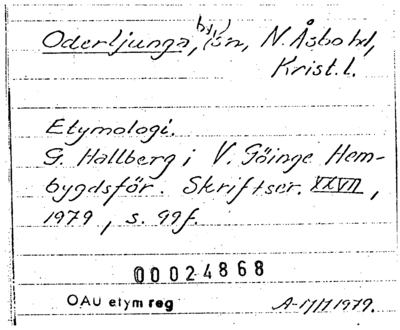 Oderljunga, by, sn, N. Åsbo hd,
Krist. l.
Etymologi.
G. Hallberg i V. Göinge Hem-
bygdsför. Skriftser. XXVII,
1979, s. 99f.
00024868
OAU etym reg
1979.